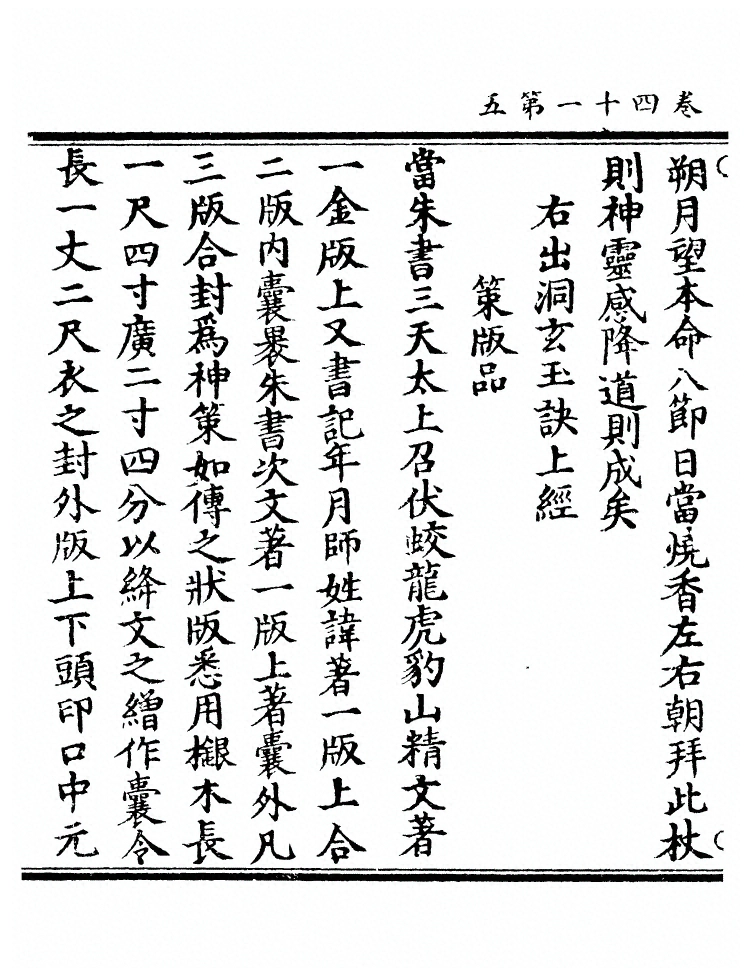 卷四十一第五
朔月望本命八節日當燒香左右朝拜此杖
則神靈感降道則成矣
右出洞玄玉訣上經
策版品
當朱書三天太上召伏蛟龍虎豹山精文著
一金版上又書記年月師姓諱著一版上合
二版內囊畢朱書次文著一版上著囊外凡
三版合封爲神策如傳之狀版悉用橷木長
一尺四寸廣二寸四分以絳文之繒作囊令
長一丈二尺衣之封外版上下頭印口中元